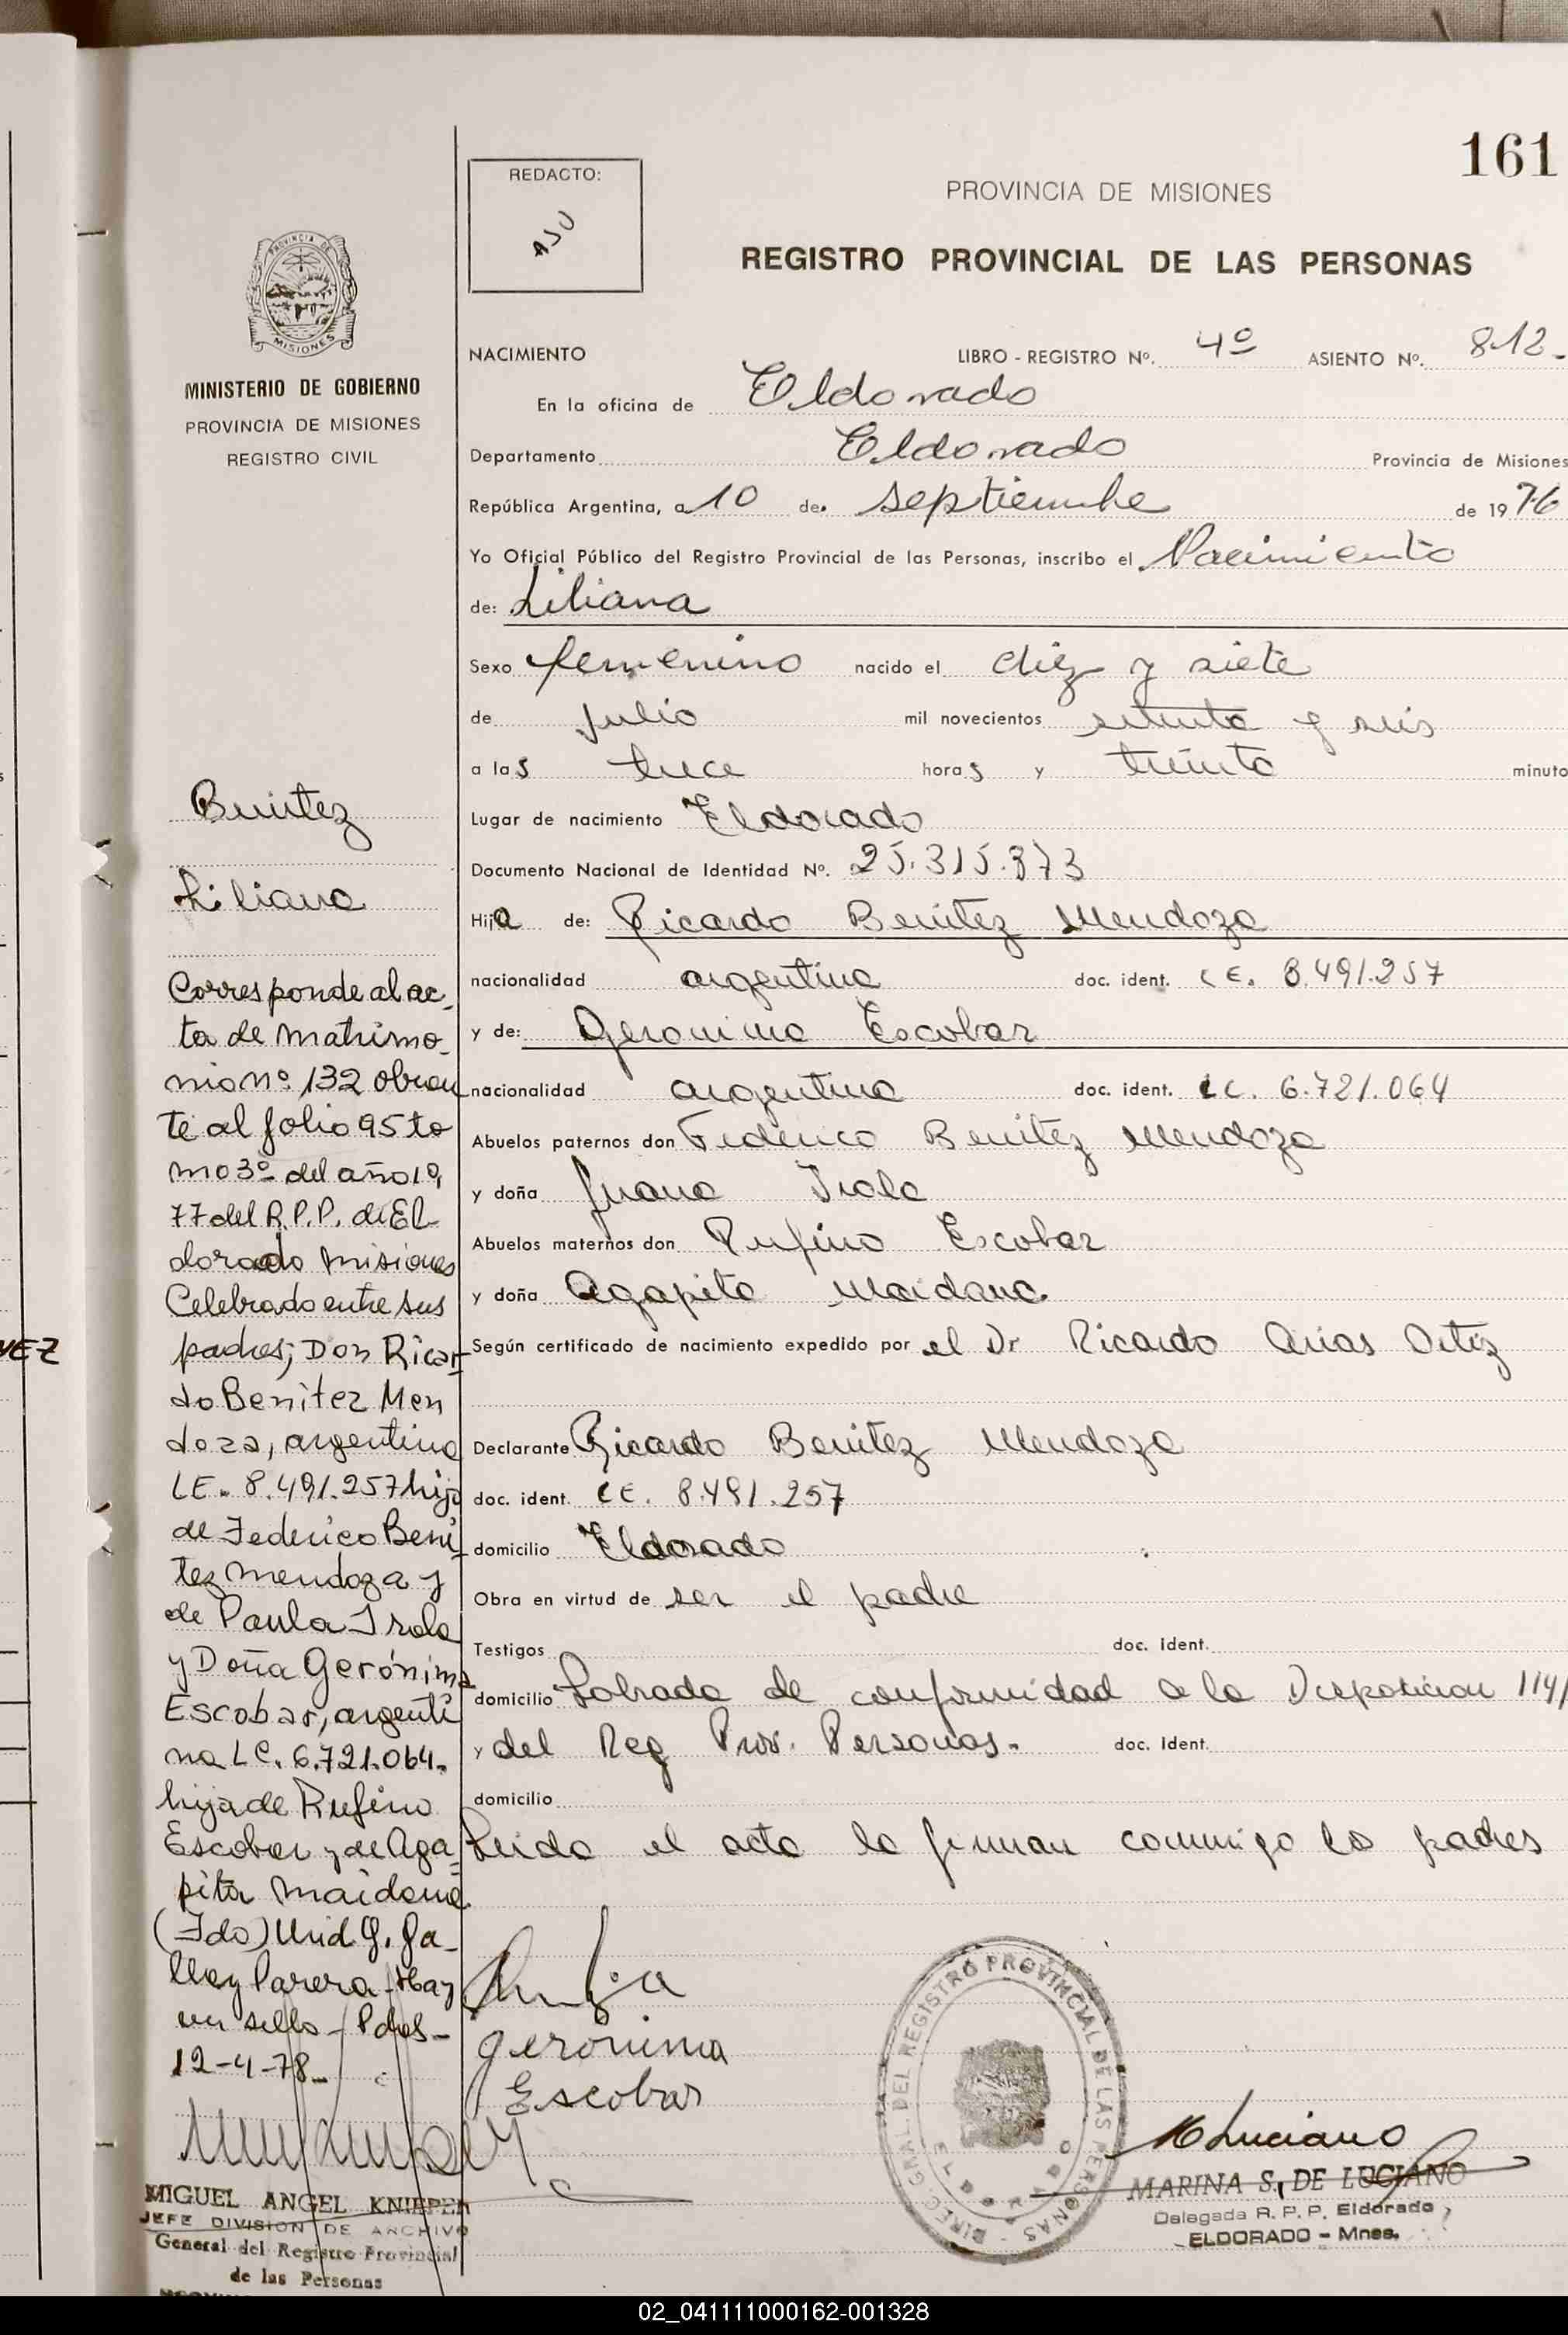 161
REDACTO:
AJU
PROVINCIA DE MISIONES
REGISTRO PROVINCIAL DE LAS PERSONAS
PROVINCIA DE
MISIONES
MINISTERIO DE GOBIERNO
PROVINCIA DE MISIONES
REGISTRO CIVIL
NACIMIENTO LIBRO - REGISTRO Nº. 4º ASIENTO Nº. 812-
En la oficina de Eldorado
Departamento Eldorado Provincia de Misiones
República Argentina, a 10 de septiembre de 1976
Yo Oficial Público del Registro Provincial de las Personas, inscribo el Nacimiento
de: Liliana
Sexo femenino nacido el diez y siete
de julio mil novecientos setenta y seis
a las trece horas y treinta minuto
Lugar de nacimiento Eldorado
Documento Nacional de Identidad Nº. 25.315.373
Hija de: Ricardo Benitez Mendoza
nacionalidad argentina doc. ident. LE. 8.491.257
y de: Geronima Escobar
nacionalidad argentina doc. ident. LC. 6.721.064
Abuelos paternos don Federico Benitez Mendoza
y doña Juana Irala
Abuelos maternos don Rufino Escobar
y doña Agapita Maidana
Según certificado de nacimiento expedido por el Dr Ricardo Arias Ortiz
Declarante Ricardo Benitez Mendoza
doc. ident. LE. 8.491.257
domicilio Eldorado
Obra en virtud de ser el padre
Testigos doc. ident.
domicilio Labrada de conformidad a la Disposicion 114/
y del Reg Prov. Personas. doc. ident.
domicilio
Leida el acta la firman conmigo los padres
Geronima
Escobar
Benitez
Liliana
Corresponde al ac-
ta de matrimo-
nio nº 132 obran
te al folio 95 to
mo 3º del año 19
77 del R.P.P. de El
dorado Misiones
Celebrado entre sus
padres; Don Ricar-
do Benitez Men
doza, argentino
LE. 8.491.257 hijo
de Federico Beni-
tez Mendoza y
de Paula Irala
y Doña Gerónima
Escobar, argenti
na LC. 6.721.064.
hija de Rufino
Escobar y de Aga-
pita Maidana
(Fdo) G. Ga-
lley Parera - Hay
un sello - Pdas-
12-4-78-
MIGUEL ANGEL KNIEPER
JEFE DIVISION DE ARCHIVO
General del Registro Provincial
de las Personas
DIREC. GRAL. DEL REGISTRO PROVINCIAL DE LAS PERSONAS
ELDORADO
M Luciano
MARINA S. DE LUCIANO
Delegada R. P. P. Eldorado
ELDORADO - Mnes.
VEZ
02_041111000162-001328